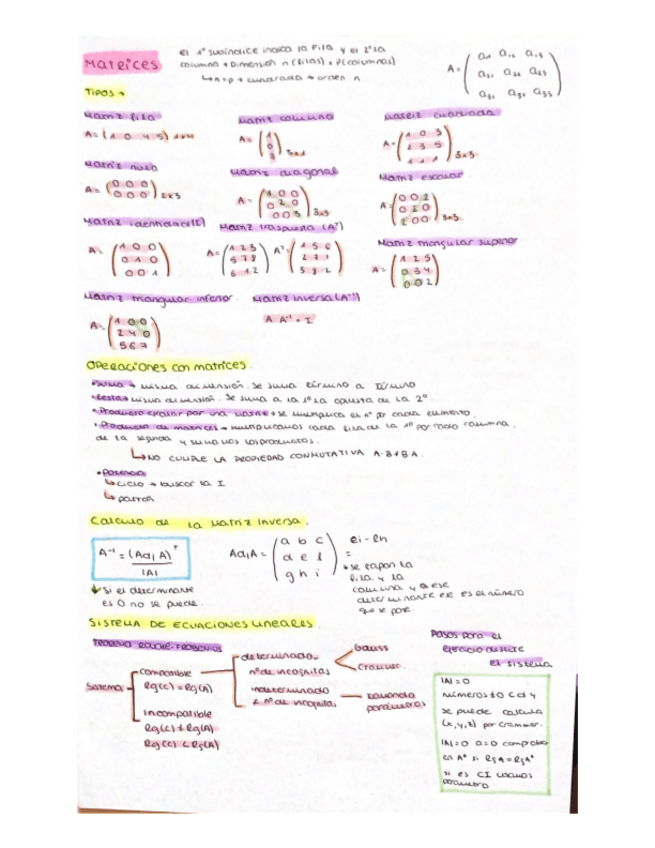 MATRICES
el 1º subíndice indica la fila y el 2º la
columna → Dimensión n (filas) x p (columnas)
↳ n=p → cuadrada → orden n
A = ( a11 a12 a13
a21 a22 a23
a31 a32 a33 )
TIPOS →
Matriz fila
A = ( 1 0 4 5 ) 1x4
Matriz columna
A = ( 1
0
3 ) 3x1
Matriz cuadrada
A = ( 1 0 3
2 3 5
1 1 1 ) 3x3
Matriz nula
A = ( 0 0 0
0 0 0 ) 2x3
Matriz diagonal
A = ( 1 0 0
0 2 0
0 0 3 ) 3x3
Matriz escalar
A = ( 0 0 2
0 2 0
2 0 0 ) 3x3
Matriz identidad (I)
A = ( 1 0 0
0 1 0
0 0 1 )
Matriz traspuesta (Aᵗ)
A = ( 1 2 3
5 7 8
6 1 2 )
Aᵗ = ( 1 5 6
2 7 1
3 8 2 )
Matriz triangular superior
A = ( 1 2 5
0 3 4
0 0 2 )
Matriz triangular inferior.
A = ( 1 0 0
2 4 0
5 6 7 )
Matriz inversa (A⁻¹)
A A⁻¹ = I
OPERACIONES CON MATRICES.
• Suma → misma dimensión. Se suma término a término
• Resta → misma dimensión. Se suma a la 1º la opuesta de la 2º.
• Producto escalar por una matriz → se multiplica el nº por cada elemento.
• Producto de matrices → multiplicamos cada fila de la 1º por cada columna.
de la segunda y sumamos los productos.
↳ NO CUMPLE LA PROPIEDAD CONMUTATIVA A·B≠B·A.
• Potencia
↳ ciclo → buscar la I
↳ patrón
Calculo de la Matriz Inversa.
A⁻¹ = (Adj A)ᵀ
|A|
Adj A = ( a b c
d e f
g h i )
ei - fh
=
↳ se tapan la
fila y la
columna y ese
determinante ese es el número
que se pone.
↓ Si el determinante
es 0 no se puede.
SISTEMA DE ECUACIONES LINEALES.
TEOREMA ROUCHÉ-FROBENIUS
Sistema
Compatible
Rg(C) = Rg(A)
determinado =
nº de incognitas
Gauss
Cramer.
indeterminado
≠ nº de incognitas
usando
parámetros
Incompatible
Rg(C) ≠ Rg(A)
Rg(C) < Rg(A)
Pasos para el
ejercicio discute
el sistema
|A| = 0
números ≠ 0 C d y
se puede calcula
(x,y,z) por crammer.
|A| = 0 a = 0 comprobo
en A* si RgA = RgA*
si es CI usamos
parámetro